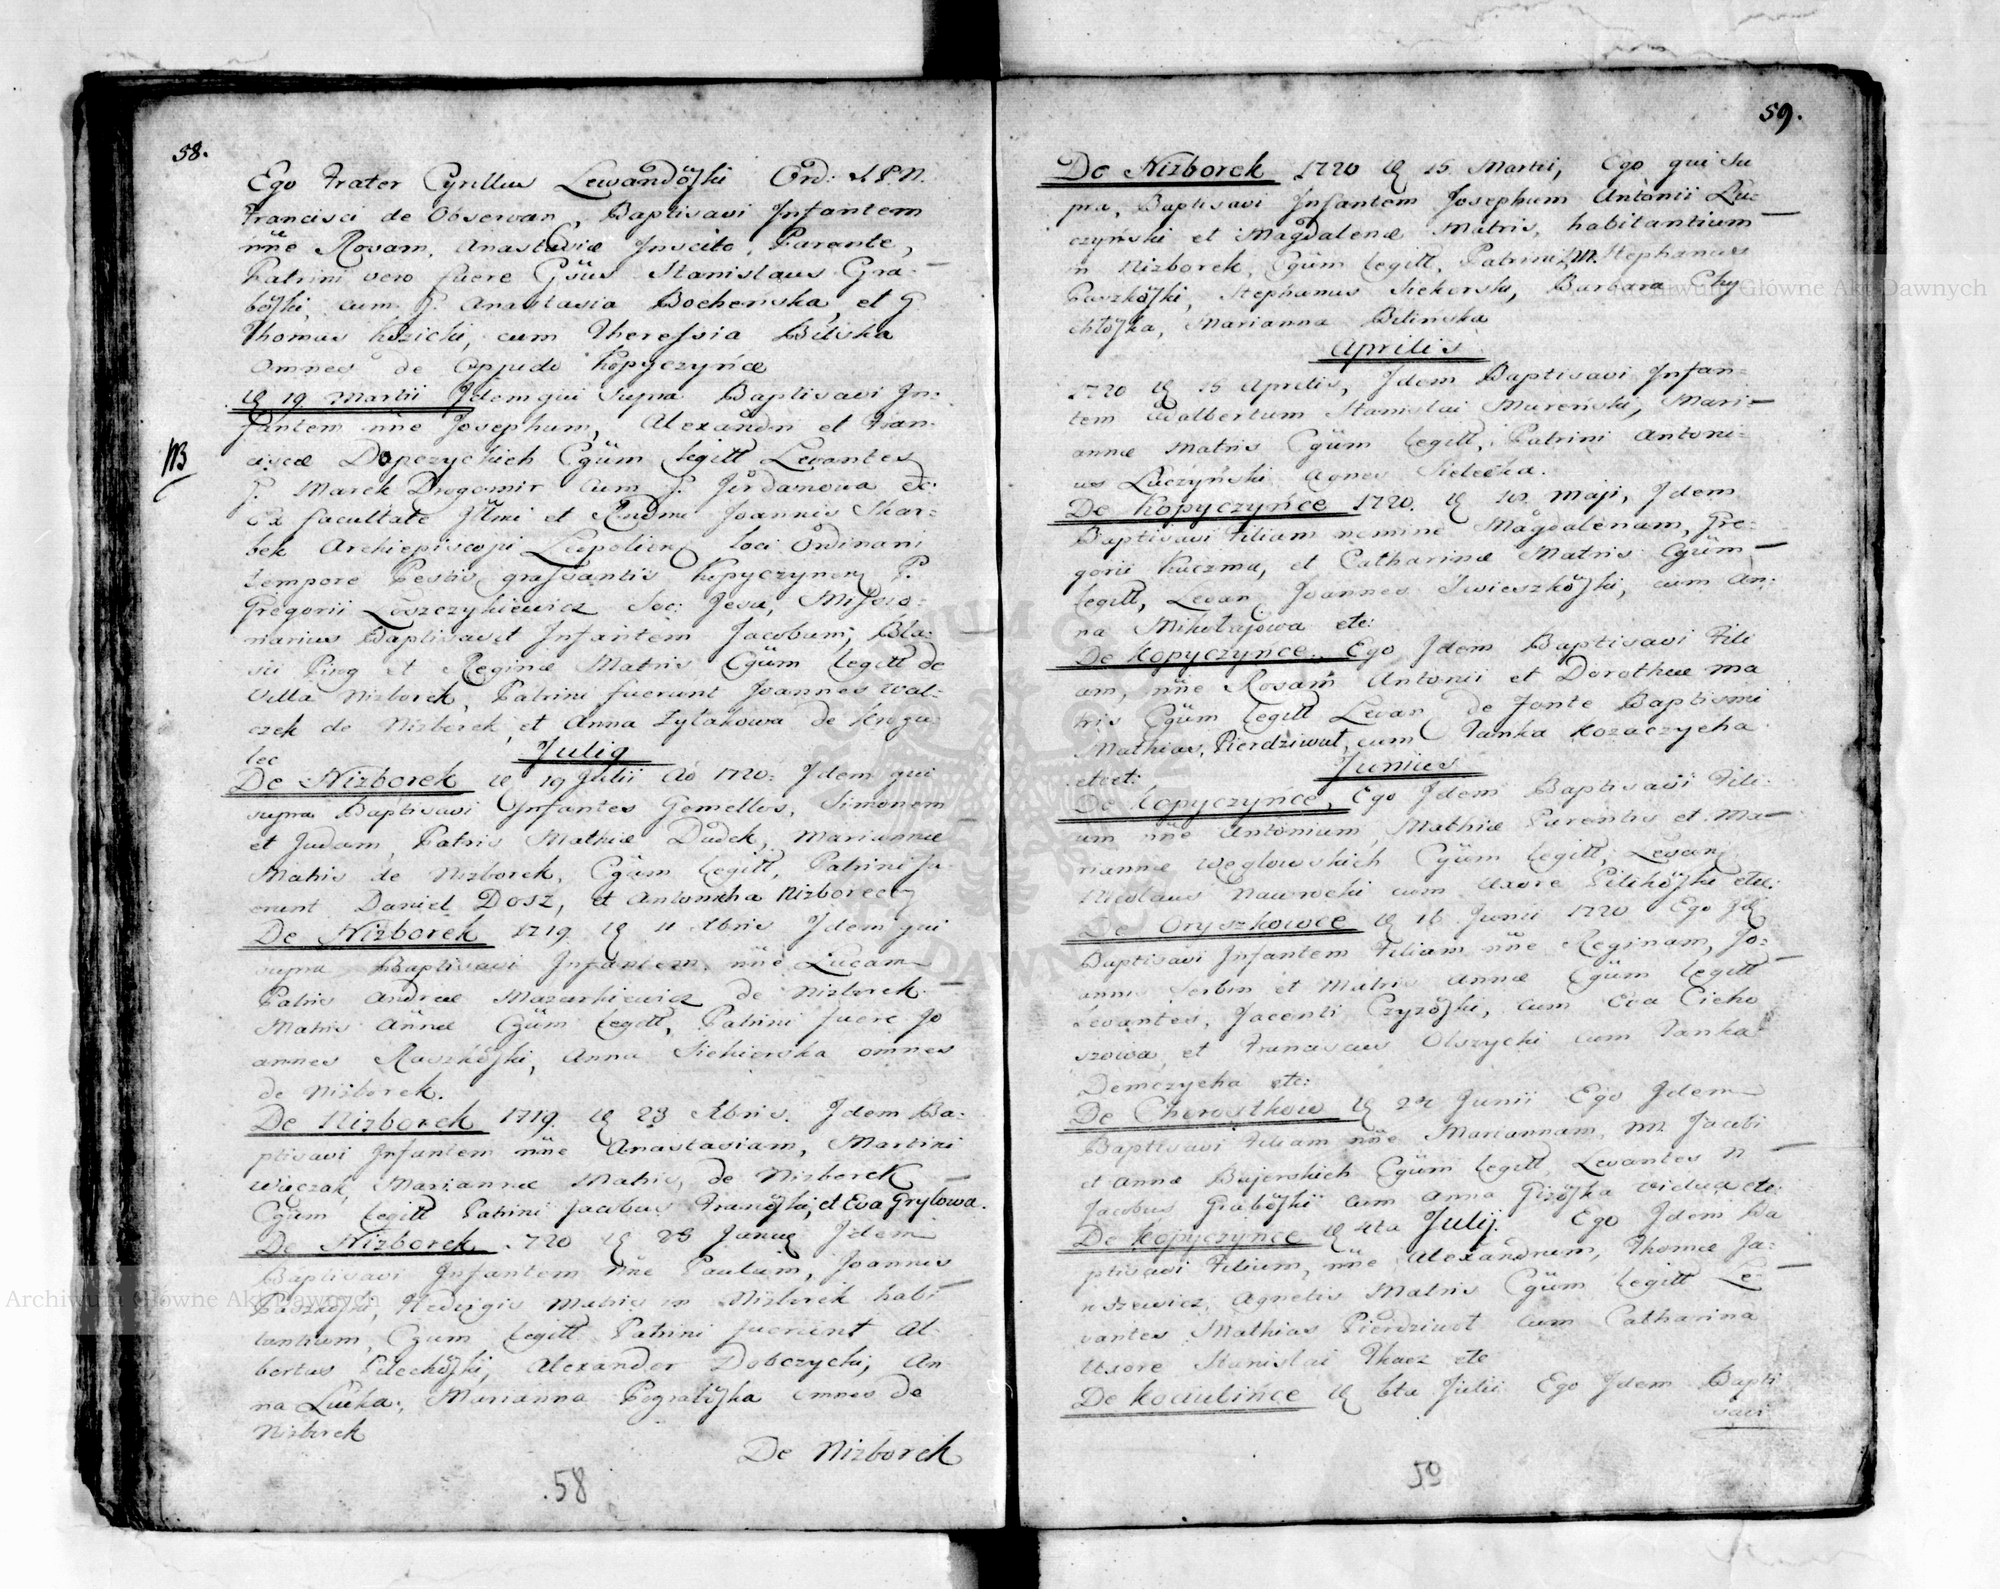 58.
Ego Frater Cyrillus Lewandöski Ord: S. P. N.
Francisci de Observan, Baptisavi Infantem
nne Rosam, Anastasiæ Inscito, Parente,
Patrini vero fuere Gsüs Stanislaus Gra-
böski, cum G. Anastasia Bocheńska, et G.
Thomas Kozicki, cum Theressia Bilska
Omnes de Oppido Kopyczyńce
19 Martii Idem qui supra Baptisavi In-
fantem nne Josephum, Alexandri et Fran-
NB
ciscæ Dopczyckich Cgüm legitt Levantes
G. Marek Dragomir cum G. Jordanowa etc:
Ex facultate Illmi et Rndmi Joannis Skar-
bek Archiepiscopi Leopolien loci Ordinarii
tempore Pestis grassantis Kopyczyncen P.
Gregorii Soc: Jesu, Missio-
narius Baptisavit Infantem Jacobum, Bla-
sii Pirog et Reginæ Matris Cgüm legitt de
Villa Nizborek, Patrini fuerunt Joannes Wal-
czek de Nizborek, et Anna Zytakowa de Krogu
lec
Julig
De Nizborek 19 Julii Ao 1720: Idem qui
supra Baptisavi Infantes Gemellos, Simonem
et Judam, Patris Mathiæ Dudek, Mariannæ
Matris de Nizborek, Cgüm legitt, Patrini fu-
erunt Daniel Dosz, et Antonicha Nizborecey
De Nizborek 1719 11 Xbris Idem qui
supra Baptisavi Infantem nne Lucam
Patris Andreæ Mazurkiewicz de Nizborek
Matris Annæ Cgüm legitt, Patrini fuere Jo
annes Raszköski, Anna Siekierska omnes
de Nizborek.
De Nizborek 1719 23 Xbris. Idem Ba-
ptisavi Infantem nne Anastasiam, Martini
Waczak, Mariannæ Matris, de Nizborek
Cgüm legitt Patrini Jacobus Franöski, et Eva Grylowa.
De Nizborek 720 23 Janua Idem
Baptisavi Infantem nne Paulum, Joannis
Paszköski, Hedvigis Matris in Nizborek habi
tantium, Cgüm legitt Patrini fuerunt Al-
bertus Pilechöski, Alexander Dobczycki, An
na Lucka, Marianna omnes de
Nizborek
De Nizborek
58
59.
De Nizborek 1720 15 Martii, Ego qui su
pra, Baptisavi Infantem Josephum Antonii Łu-
czyński et Magdalenæ Matris, habitantium
in Nizborek, Cgüm legitt, Patrini M. Stephanus
Paszköski, Stephanus Siekierski, Barbara Chy
chłöska, Marianna Bilińska
Aprilis
1720 15 Aprilis, Idem Baptisavi Infan-
tem Adalbertum Stanislai Mureński, Mari-
annæ Matris Cgüm legitt, Patrini Antoni-
us Łuczyński Agnes Sielecka.
De Kopyczyńce 1720. 10 Maji, Idem
Baptisavi Filiam nomine Magdalenam, Gre-
gorii Kuczma, et Catharinæ Matris Cgüm
legitt, Levan Joannes Swieszköski, cum An-
na Mikołajowa etc:
De Kopyczynce. Ego Idem Baptisavi Fili
am, nne Rosam Antonii et Dorotheæ ma
tris Cgüm legitt Levan de Fonte Baptismi
Mathias Pierdziwut, cum Tanka Kozaczycha
etcet:
Junius
De Kopyczynce, Ego Idem Baptisavi Fili-
um nne Antonium, Mathiæ Parentis et Ma-
riannæ Węglowskich Cgüm legitt, Levan
Nicolaus Nawrocki cum Uxore Pilichöski etc:
De Oryszkowce 16 Junii 1720 Ego Id
Baptisavi Infantem Filiam nne Reginam, Jo-
annis Serbin et Matris Annæ Cgüm legitt
Levantes, Jacenti Czyzöski, cum Eva Cieho
szowa et Franciscus Olszycki cum Tanka
Demczycha etc:
De Chorostkow 24 Junii Ego Idem
Baptisavi Filiam nne Mariannam, M. Jacobi
et Annæ Bajerskich Cgüm legitt, Levantes N
Jacobus Graböski cum Anna Gizöska vidua etc:
De Kopyczynce 4ta Julij. Ego Idem Ba
ptisavi Filium, nne Alexandrum, Thomæ Ja-
roszewicz, Agnetis Matris Cgüm legitt Le-
vantes Mathias Pierdziwot cum Catharina
Uxore Stanislai Tkacz etc
De Kociubińce 6ta Julii Ego Idem Bapti
savi
59
Archiwum Główne Akt Dawnych
Archiwum Główne Akt Dawnych